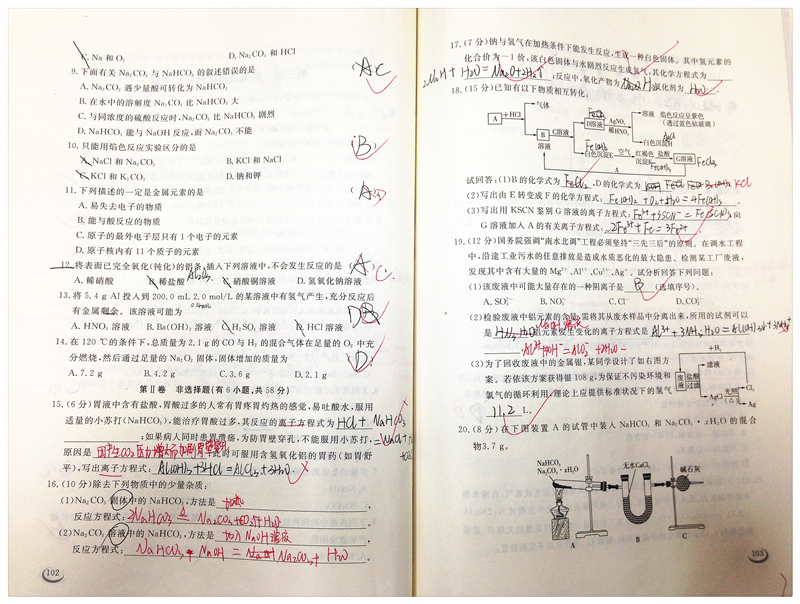 C. Na 和 O₂ D. Na₂CO₃ 和 HCl
9. 下面有关 Na₂CO₃ 与 NaHCO₃ 的叙述错误的是
A. Na₂CO₃ 遇少量酸可转化为 NaHCO₃
B. 在水中的溶解度 Na₂CO₃ 比 NaHCO₃ 大
C. 与同浓度的硫酸反应时, Na₂CO₃ 比 NaHCO₃ 剧烈
D. NaHCO₃ 能与 NaOH 反应, 而 Na₂CO₃ 不能
10. 只能用焰色反应实验区分的是 (B)
A. NaCl 和 Na₂CO₃ B. KCl 和 NaCl
C. KCl 和 K₂CO₃ D. 钠和钾
11. 下列描述的一定是金属元素的是
A. 易失去电子的物质
B. 能与酸反应的物质
C. 原子的最外电子层只有 1 个电子的元素
D. 原子核内有 11 个质子的元素
12. 将表面已完全氧化(钝化)的铝条, 插入下列溶液中, 不会发生反应的是
A. 稀硝酸 B. 稀盐酸 C. 硝酸铜溶液 D. 氢氧化钠溶液
13. 将 5.4 g Al 投入到 200.0 mL 2.0 mol/L 的某溶液中有氢气产生, 充分反应后
有金属剩余。该溶液可能为
A. HNO₃ 溶液 B. Ba(OH)₂ 溶液 C. H₂SO₄ 溶液 D. HCl 溶液
14. 在 120 ℃的条件下, 总质量为 2.1 g 的 CO 与 H₂ 的混合气体在足量的 O₂ 中充
分燃烧, 然后通过足量的 Na₂O₂ 固体, 固体增加的质量为
A. 7.2 g B. 4.2 g C. 3.6 g D. 2.1 g
第Ⅱ卷 非选择题(有 6 小题, 共 58 分)
15. (6 分)胃液中含有盐酸, 胃酸过多的人常有胃疼胃灼热的感觉, 易吐酸水, 服用
适量的小苏打(NaHCO₃), 能治疗胃酸过多, 其反应的离子方程式为 HCl + NaHCO₃
;如果病人同时患胃溃疡, 为防胃壁穿孔, 不能服用小苏打,
原因是 , 此时可服用含氢氧化铝的胃药(如胃舒
平), 写出离子方程式: Al(OH)₃+3HCl=AlCl₃+3H₂O
16. (10 分)除去下列物质中的少量杂质:
(1)Na₂CO₃ 固体中的 NaHCO₃, 方法是 加热 。
反应方程式: 2NaHCO₃ △= Na₂CO₃+CO₂↑+H₂O
(2)Na₂CO₃ 溶液中的 NaHCO₃, 方法是 加入 NaOH 溶液
反应方程式: NaHCO₃ + NaOH = Na₂CO₃ + H₂O
102
17. (7 分)钠与氢气在加热条件下能发生反应, 生成一种白色固体。其中氢元素的
化合价为 -1 价, 该白色固体与水剧烈反应生成氢气, 其化学方程式为
;反应中, 氧化产物为 , 氧化剂为 H₂O 。
18. (15 分)已知有以下物质相互转化:
A +HCl 气体 B 溶液 C溶液 D溶液 AgNO₃ 稀HNO₃ 溶液 焰色反应呈紫色
(透过蓝色钴玻璃)
白色沉淀H
白色沉淀E 空气 红褐色沉淀F 盐酸 G溶液 FeCl₃
A
试回答: (1)B 的化学式为 FeCl₂ , D 的化学式为 KCl
(2)写出由 E 转变成 F 的化学方程式:
(3)写出用 KSCN 鉴别 G 溶液的离子方程式: ;向
G 溶液加入 A 的有关离子方程式: 2Fe³⁺ + Fe = 3Fe²⁺ 。
19. (12 分)国务院强调“南水北调”工程必须坚持“三先三后”的原则。在调水工程
中, 沿途工业污水的任意排放是造成水质恶化的最大隐患。检测某工厂废液,
发现其中含有大量的 Mg²⁺、Al³⁺、Cu²⁺、Ag⁺。试分析回答下列问题:
(1)该废液中可能大量存在的一种阴离子是 B (选填序号)。
A. SO₄²⁻ B. NO₃⁻ C. Cl⁻ D. CO₃²⁻
(2)检验废液中铝元素的含量, 需将其从废水样品中分离出来, 所用的试剂可以
是 NaOH 溶液 , 铝元素发生变化的离子方程式是
(3)为了回收废液中的金属银, 某同学设计了如右图方
案。若依该方案获得银 108 g, 为保证不污染环境和
氯气的循环利用, 理论上应提供标准状况下的氢气
11.2 L。
+H₂
废液 盐酸 过滤 滤液
AgCl 光照 (△) Cl₂
Ag
20. (8 分)在下图装置 A 的试管中装入 NaHCO₃ 和 Na₂CO₃·xH₂O 的混合
物 3.7 g。
NaHCO₃
Na₂CO₃·xH₂O 无水CaCl₂ 碱石灰
A B C
103